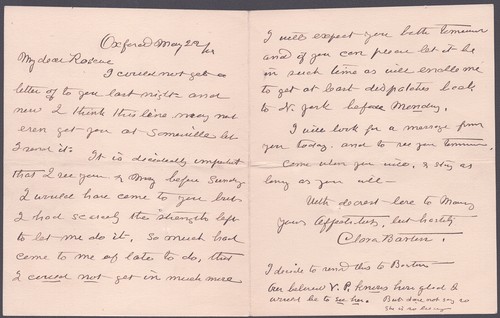 Oxford May 22/
My dear Roscoe
I could not get a
letter off to you last night and
now I think this line may not
even get you at Somerville but
I send it. It is decidedly important
that I see you & May before Sunday
I would have come to you but
I had scarcely the strength left
to let me do it. So much had
come to me of late to do, that
I could not get in much more
I will expect you both tomorrow
and if you can please let it be
in such time as will enable me
to get at least dispatches back
to N. York before Monday.
I will look for a message from
you today. and to see you tomorrow.
Come when you will, & stay as
long as you will —
With dearest love to Mamy
Yours affectionately, but hastily
Clara Barton.
I decide to send this to Boston
Our beloved V. P. knows how glad I
would be to see her. But dare not say so
She is so busy